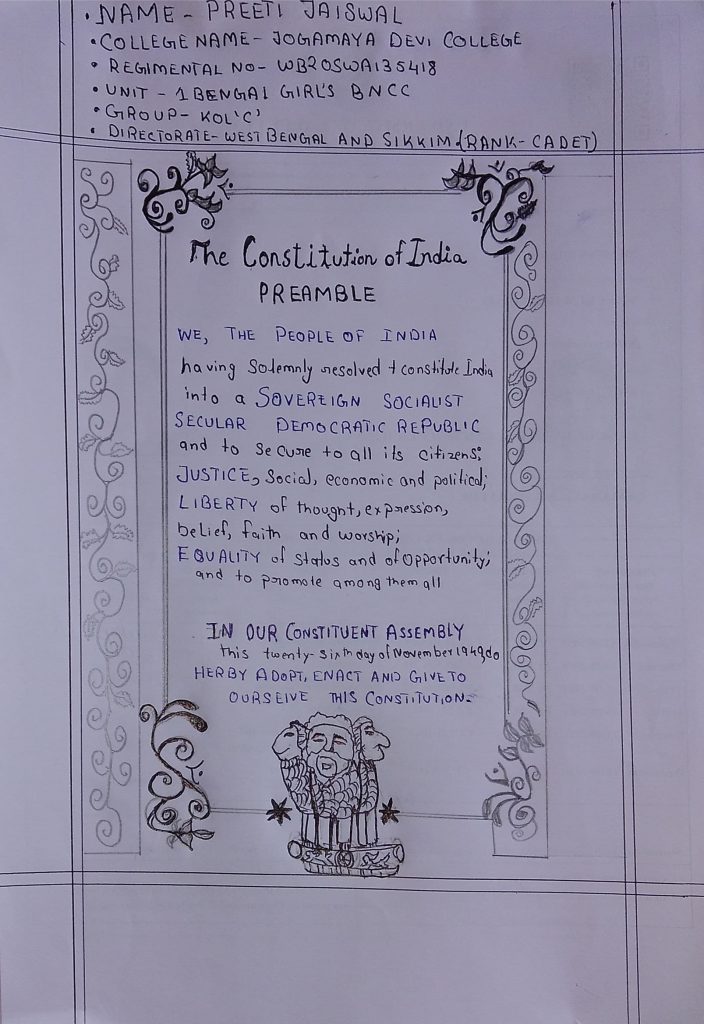 • NAME - PREETI JAISWAL
• COLLEGE NAME - JOGAMAYA DEVI COLLEGE
• REGIMENTAL NO - WB20SWA135418
• UNIT - 1 BENGAL GIRL'S BNCC
• GROUP - KOL'C'
• DIRECTORATE - WEST BENGAL AND SIKKIM (RANK - CADET)
The Constitution of India
PREAMBLE
WE, THE PEOPLE OF INDIA
having Solemnly resolved t constitute India
into a SOVEREIGN SOCIALIST
SECULAR DEMOCRATIC REPUBLIC
and to secure to all its citizens:
JUSTICE, Social, economic and political;
LIBERTY of thought, expression,
belief, faith and worship;
EQUALITY of status and of opportunity;
and to promote among them all
IN OUR CONSTITUENT ASSEMBLY
this twenty-sixth day of November 1949, do
HERBY ADOPT, ENACT AND GIVE TO
OURSEIVE THIS CONSTITUTION.